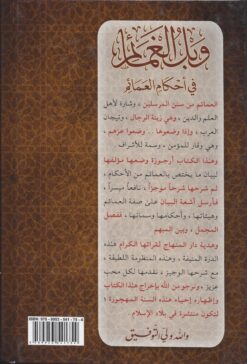 وبل الغمائم
في أحكام العمائم
العمائم من سنن المرسلين، وشارة لأهل
العلم والدين، وهي زينة الرجال، وتيجان
العرب، وإذا وضعوها.. وضعوا عزهم،
وهي وقار للمؤمن، وسمة للأشراف
وهذا الكتاب أرجوزة وضعها مؤلفها
لبيان ما يختص بالعمائم من الأحكام،
ثم شرحها شرحاً موجزاً، نافعاً ميسراً،
فأرسل أشعة البيان على صفة العمائم
وهيئاتها، وأحكامها وسماتها، ففصل
المجمل، وبين المبهم
وهدية دار المنهاج لقرائها الكرام هذه
الدرة المنيفة، وهذه المنظومة اللطيفة
مع شرحها الوجيز، نقدمها لكل محب
عزيز، ونرجو من الله بإخراج هذا الكتاب
وإظهاره، إحياء هذه السنة المهجورة؛
لتكون منتشرة في بلاد الإسلام
والله ولي التوفيق